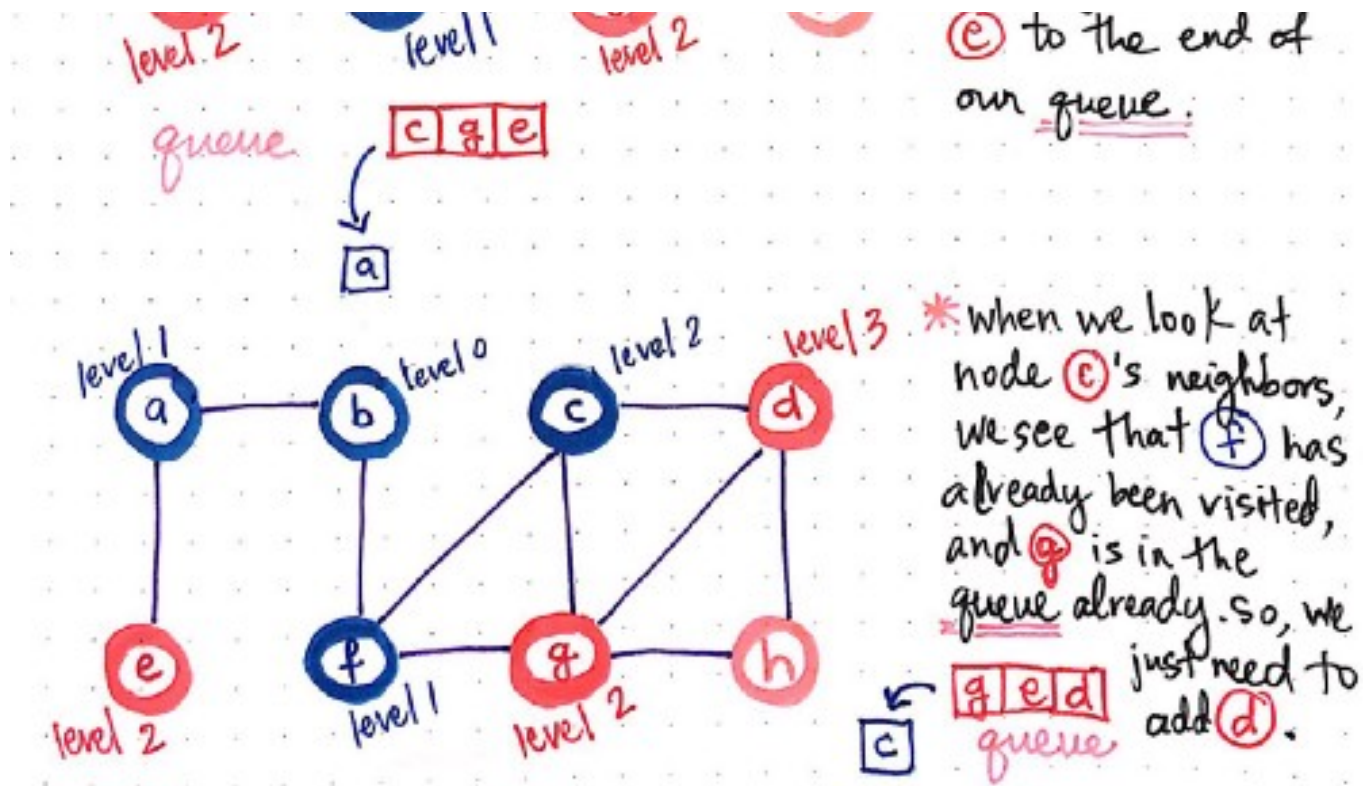 level 2
level 1
level 2
e to the end of
our queue.
queue
c g e
a
level 1
level 0
level 2
level 3
a
b
c
d
e
f
g
h
level 2
level 1
level 2
* when we look at
node c's neighbors,
we see that f has
already been visited,
and g is in the
queue already. so, we
just need to
add d.
g e d
c
queue